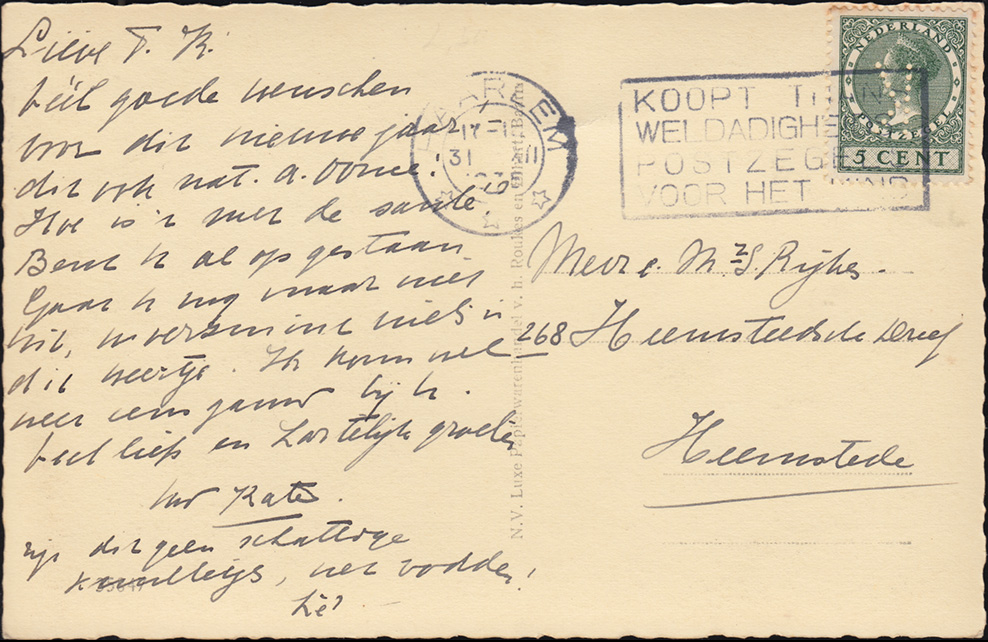 Lieve T. K.
Véél goede wenschen
voor dit nieuwe jaar,
dit ook nat. a. Oome.
Hoe is 't met de santé,
Bent U al opgestaan
Gaat U nog maar niet
uit, niets in
dit weertje. Ik kom wel
weer eens gauw bij U.
Veel liefs en hartelijke groeten
uw Kate.
zijn dit geen schattige
, net vodden,
hè?
HAARLEM
17-1
31 XII
KOOPT THANS
WELDADIGHEIDS
POSTZEGELS
VOOR HET KIND
NEDERLAND
POSTZEGEL
5 CENT
N.V. Luxe Papierwarenhandel v. h. Roukes en Erhart, Baarn
Mevr. S. Rijkes.
268 Heemsteedsche Dreef
Heemstede